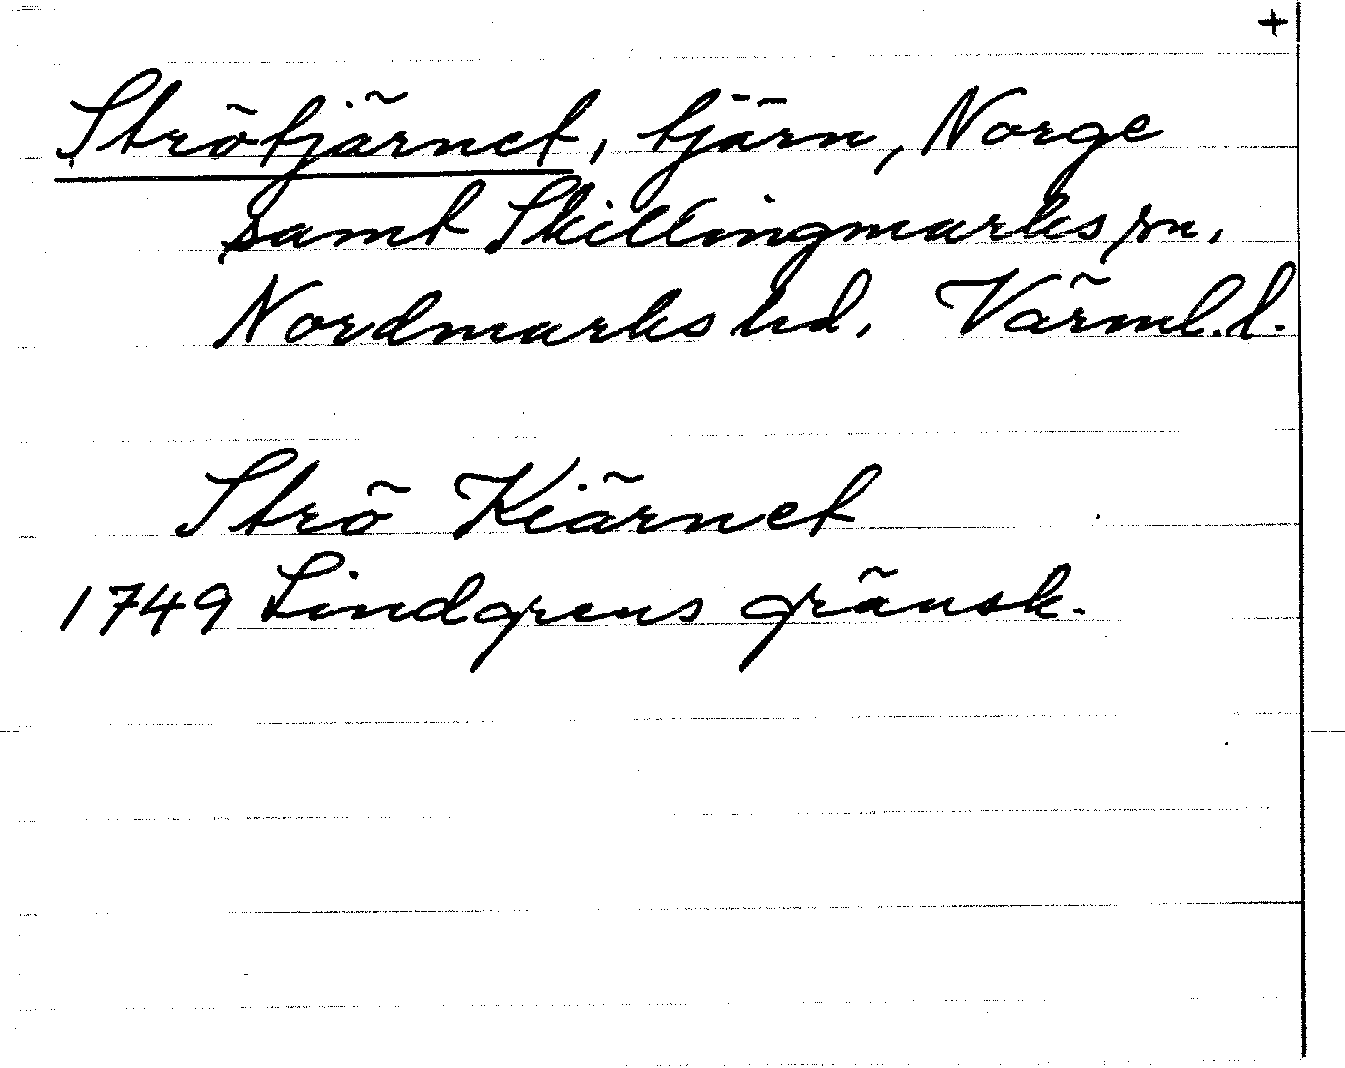 +
Strötjärnet, tjärn, Norge
samt Skillingmarks sn,
Nordmarks hd. Värml. l.
Strö Kiärnet
1749 Lindgrens gränsk.